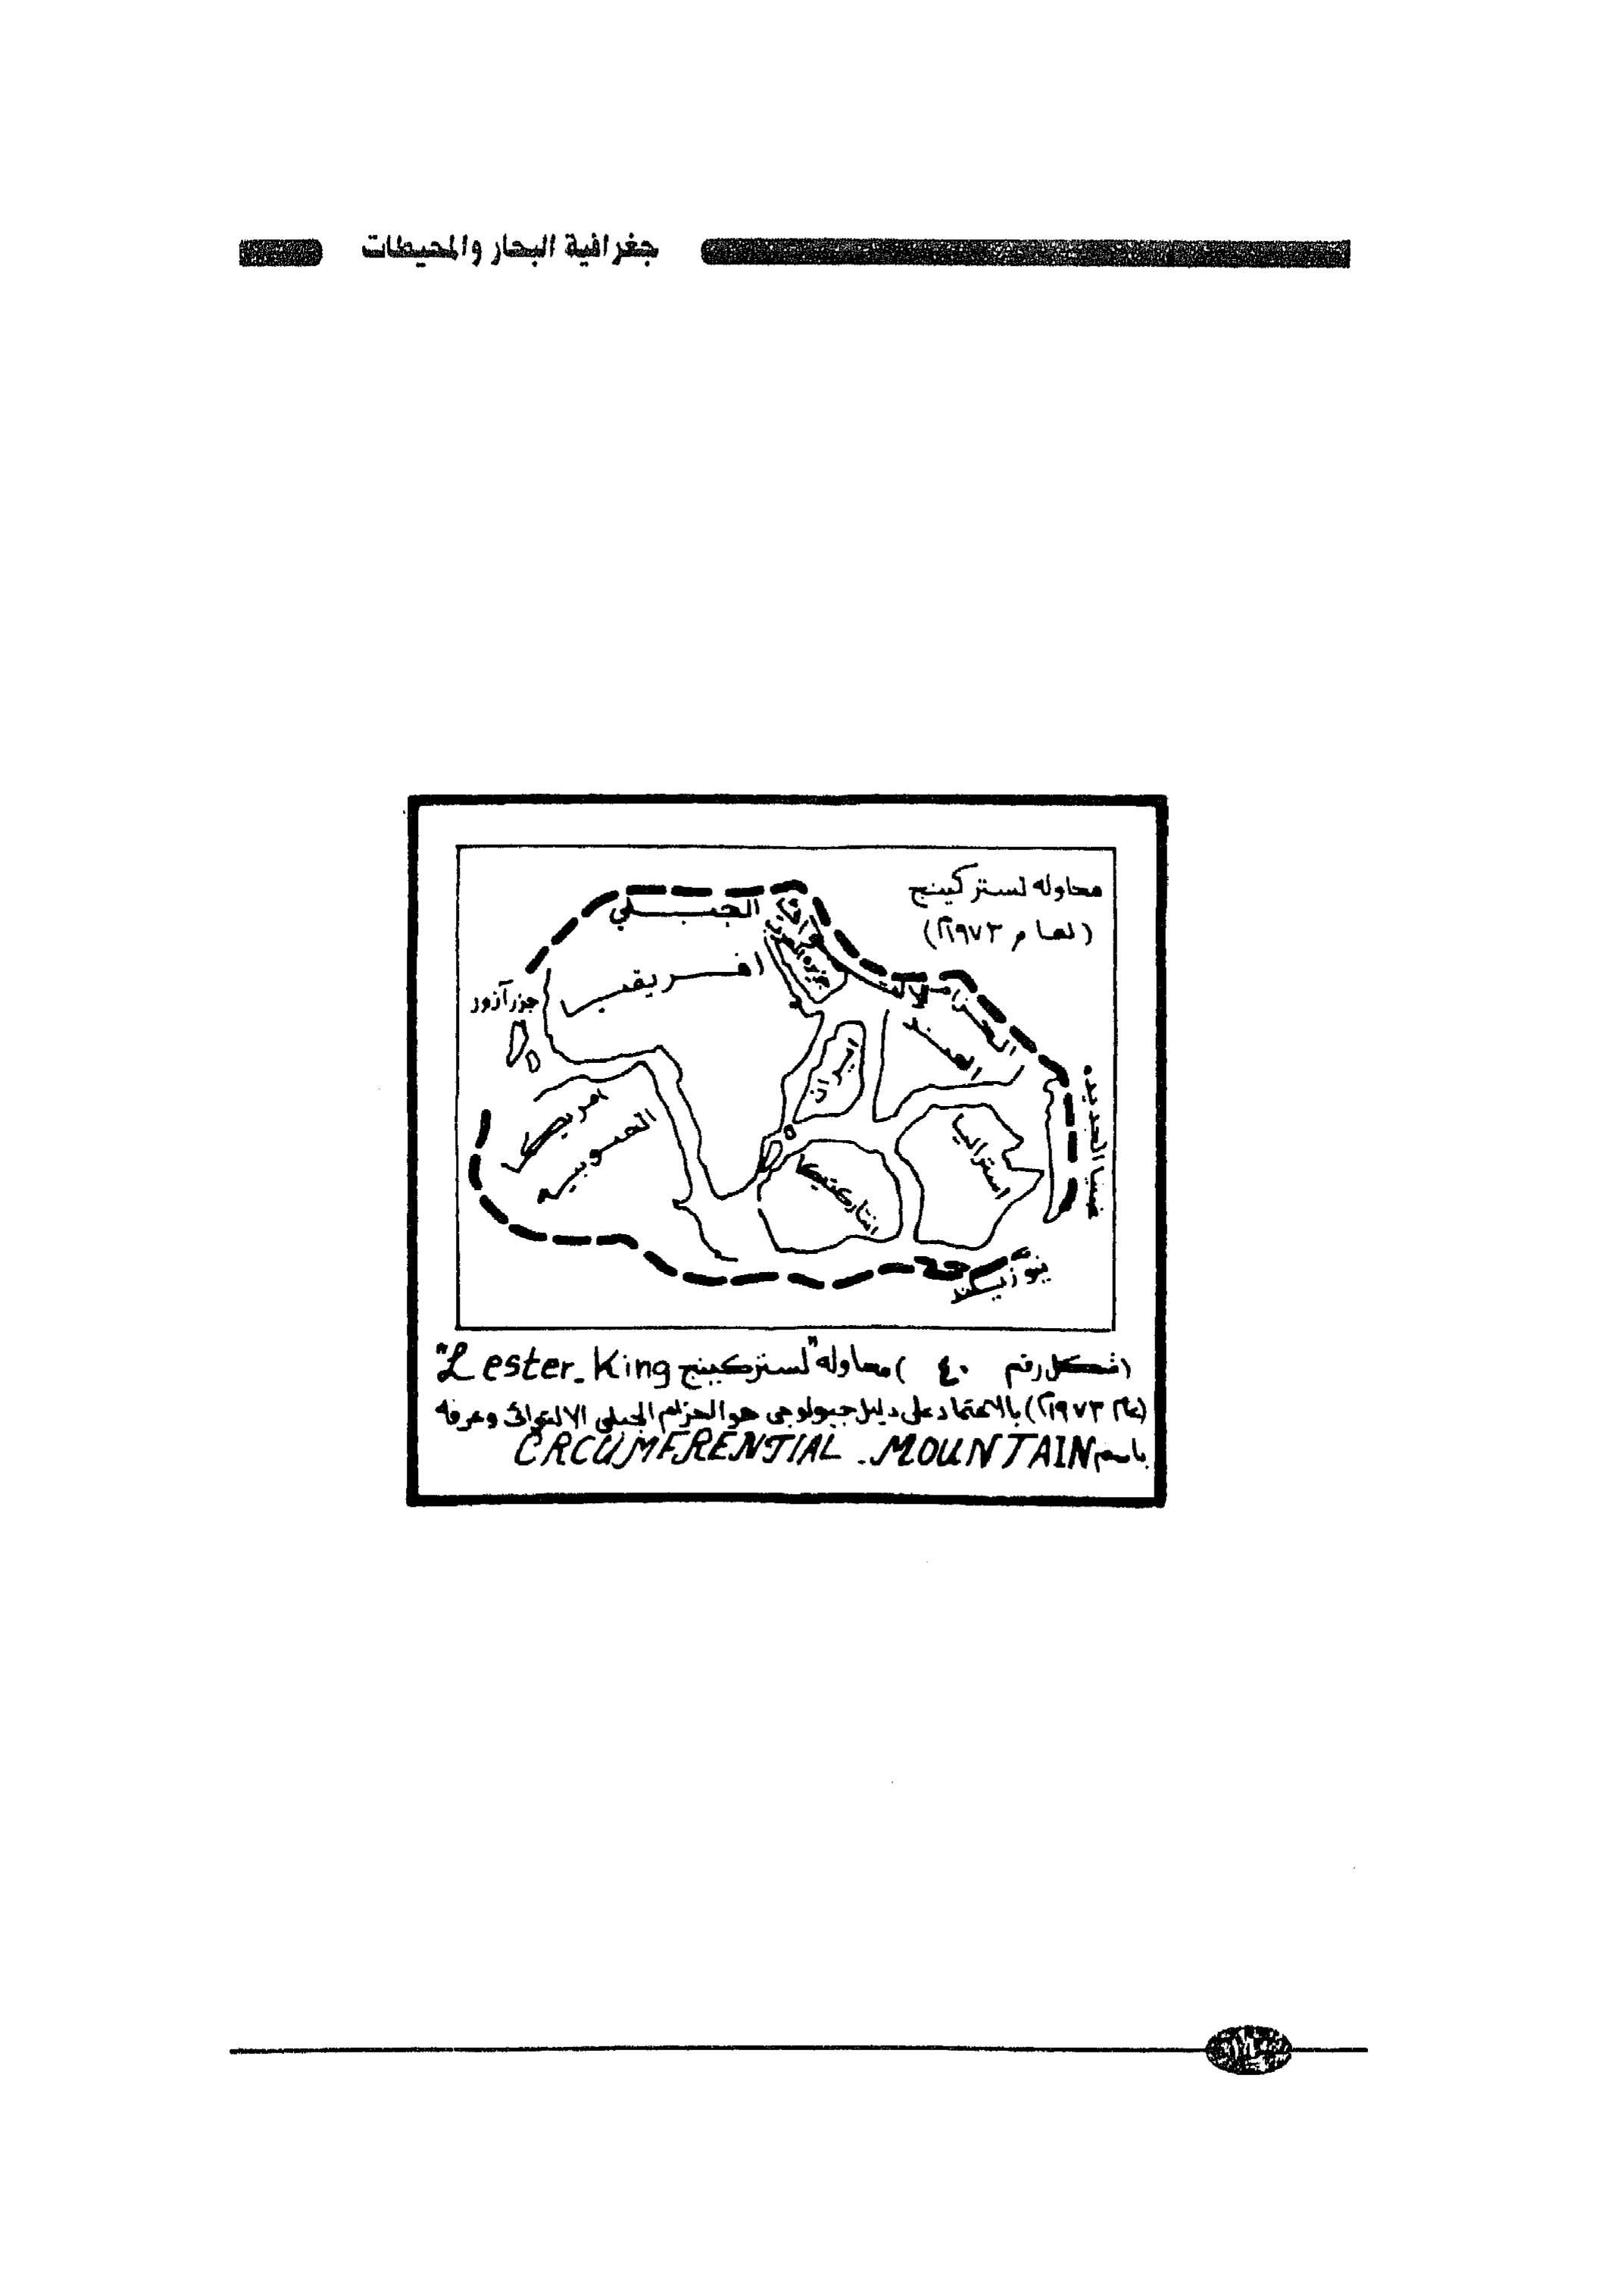 جغرافية البحار والمحيطات
محاوله لستر كينج
(لعام ١٩٧٣م)
الجبلي
افريقيا
جزر آزور
الهند
ايران
امريكا
الجنوبيه
استراليا
انتاركتيكا
غينيا الجديده
نيوزيلند
(شكل رقم ٤٠) محاوله "لستر كينج Lester_King"
(عام ١٩٧٣م) بالاعتماد على دليل جيولوجى هو الحزام الجبلى الالتوائى وعرفه
باسم CRCUMFRENTIAL_MOUNTAIN